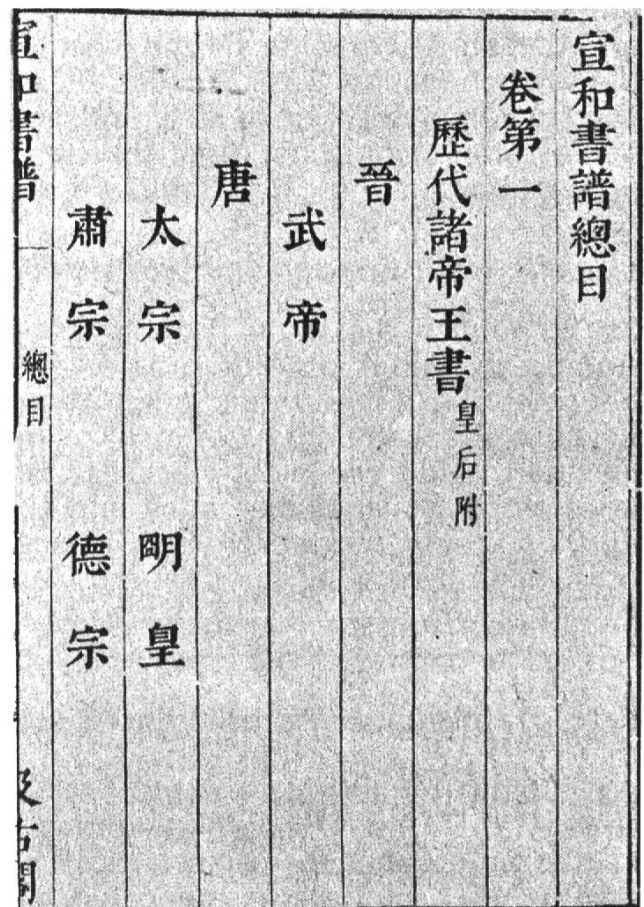 宣和書譜總目
卷第一
歷代諸帝王書皇后附
晉
武帝
唐
太宗 明皇
肅宗 德宗
宣和書譜 總目 汲古閣